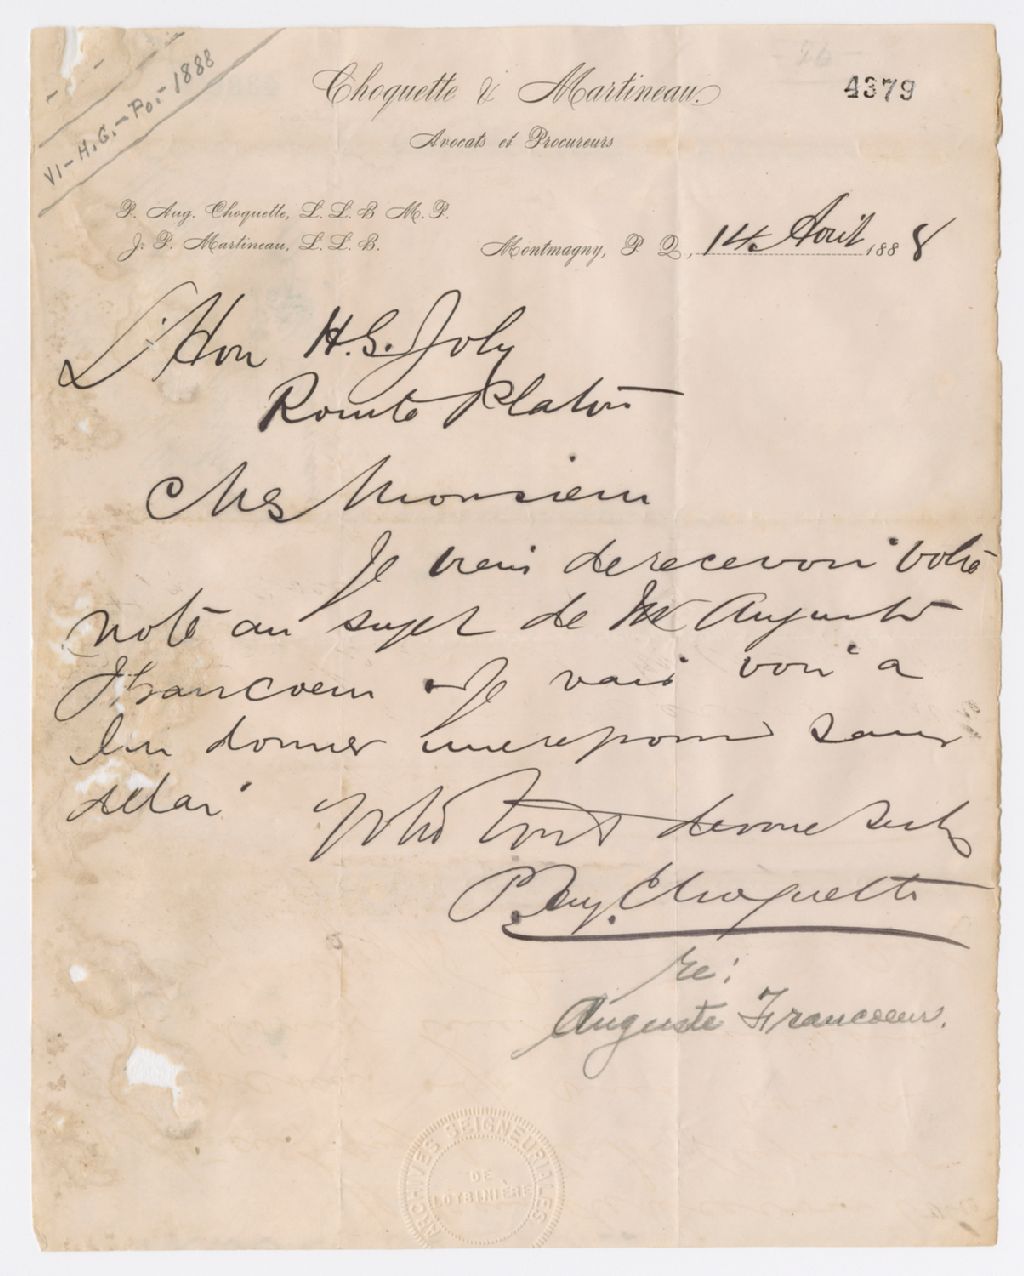 VI-H.G.-Por-1888
4379
Choquette & Martineau.
Avocats et Procureurs
P. Aug. Choquette, L. L. B. M. P.
J. P. Martineau, L. L. B.
Montmagny, P. Q., 14 Août 1888
L'Hon H.G. Joly
Pointe Platon
Mon Monsieur
Je viens de recevoir votre
note au sujet de Mr Auguste
Francoeur Je vais voir à
lui donner une réponse sans
délai
Votre tout dévoué
P. Aug. Choquette
re:
Auguste Francoeur.
ARCHIVES SEIGNEURIALES
DE
LOTBINIÈRE